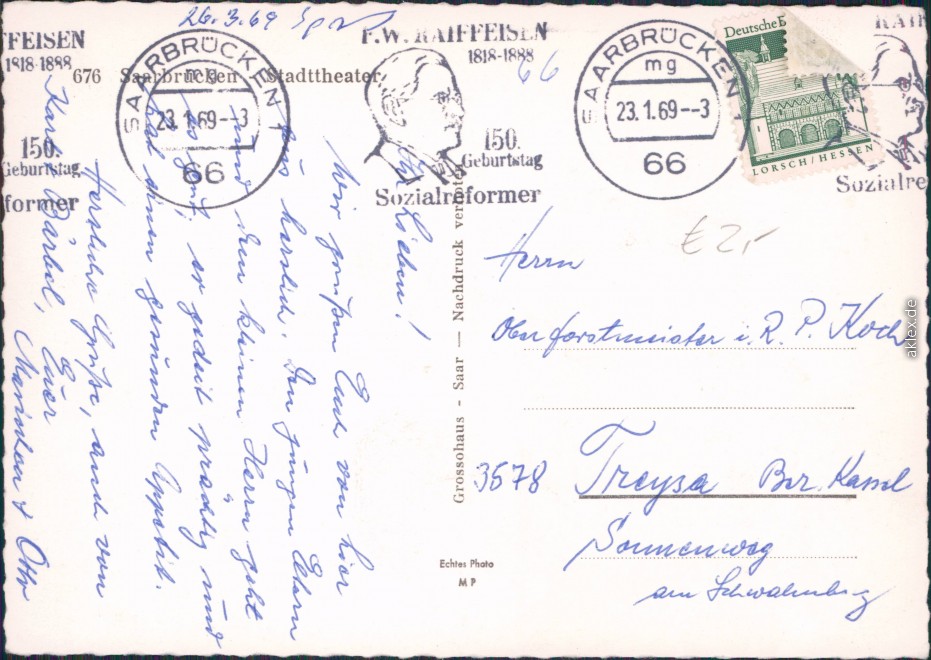 26.3.69
FFEISEN
1818-1888
150.
Geburtstag
former
SAARBRÜCKEN 1
mg
23.1.69--3
66
F.W. RAIFFEISEN
1818-1888
150.
Geburtstag
Sozialreformer
SAARBRÜCKEN 1
mg
23.1.69--3
66
Deutsche
LORSCH/HESSEN
RAIF
Sozialre
676 Saarbrücken - Stadttheater
66
Ihr Lieben!
Wir grüßen Euch von hier
aus herzlich. Den jungen Eltern
und dem kleinen Herrn geht
es gut, er gedeiht prächtig und
hat einen gesunden Appetit.
Herzliche Grüße, auch von
Karl, Bärbel, Euer
Otto
Grossohaus - Saar — Nachdruck verboten
Echtes Photo
M P
€ 2,-
Herrn
Oberforstmeister i. R. P. Koch
3578 Treysa Bez. Kassel
Sonnenweg
am Schwalmberg
aklex.de